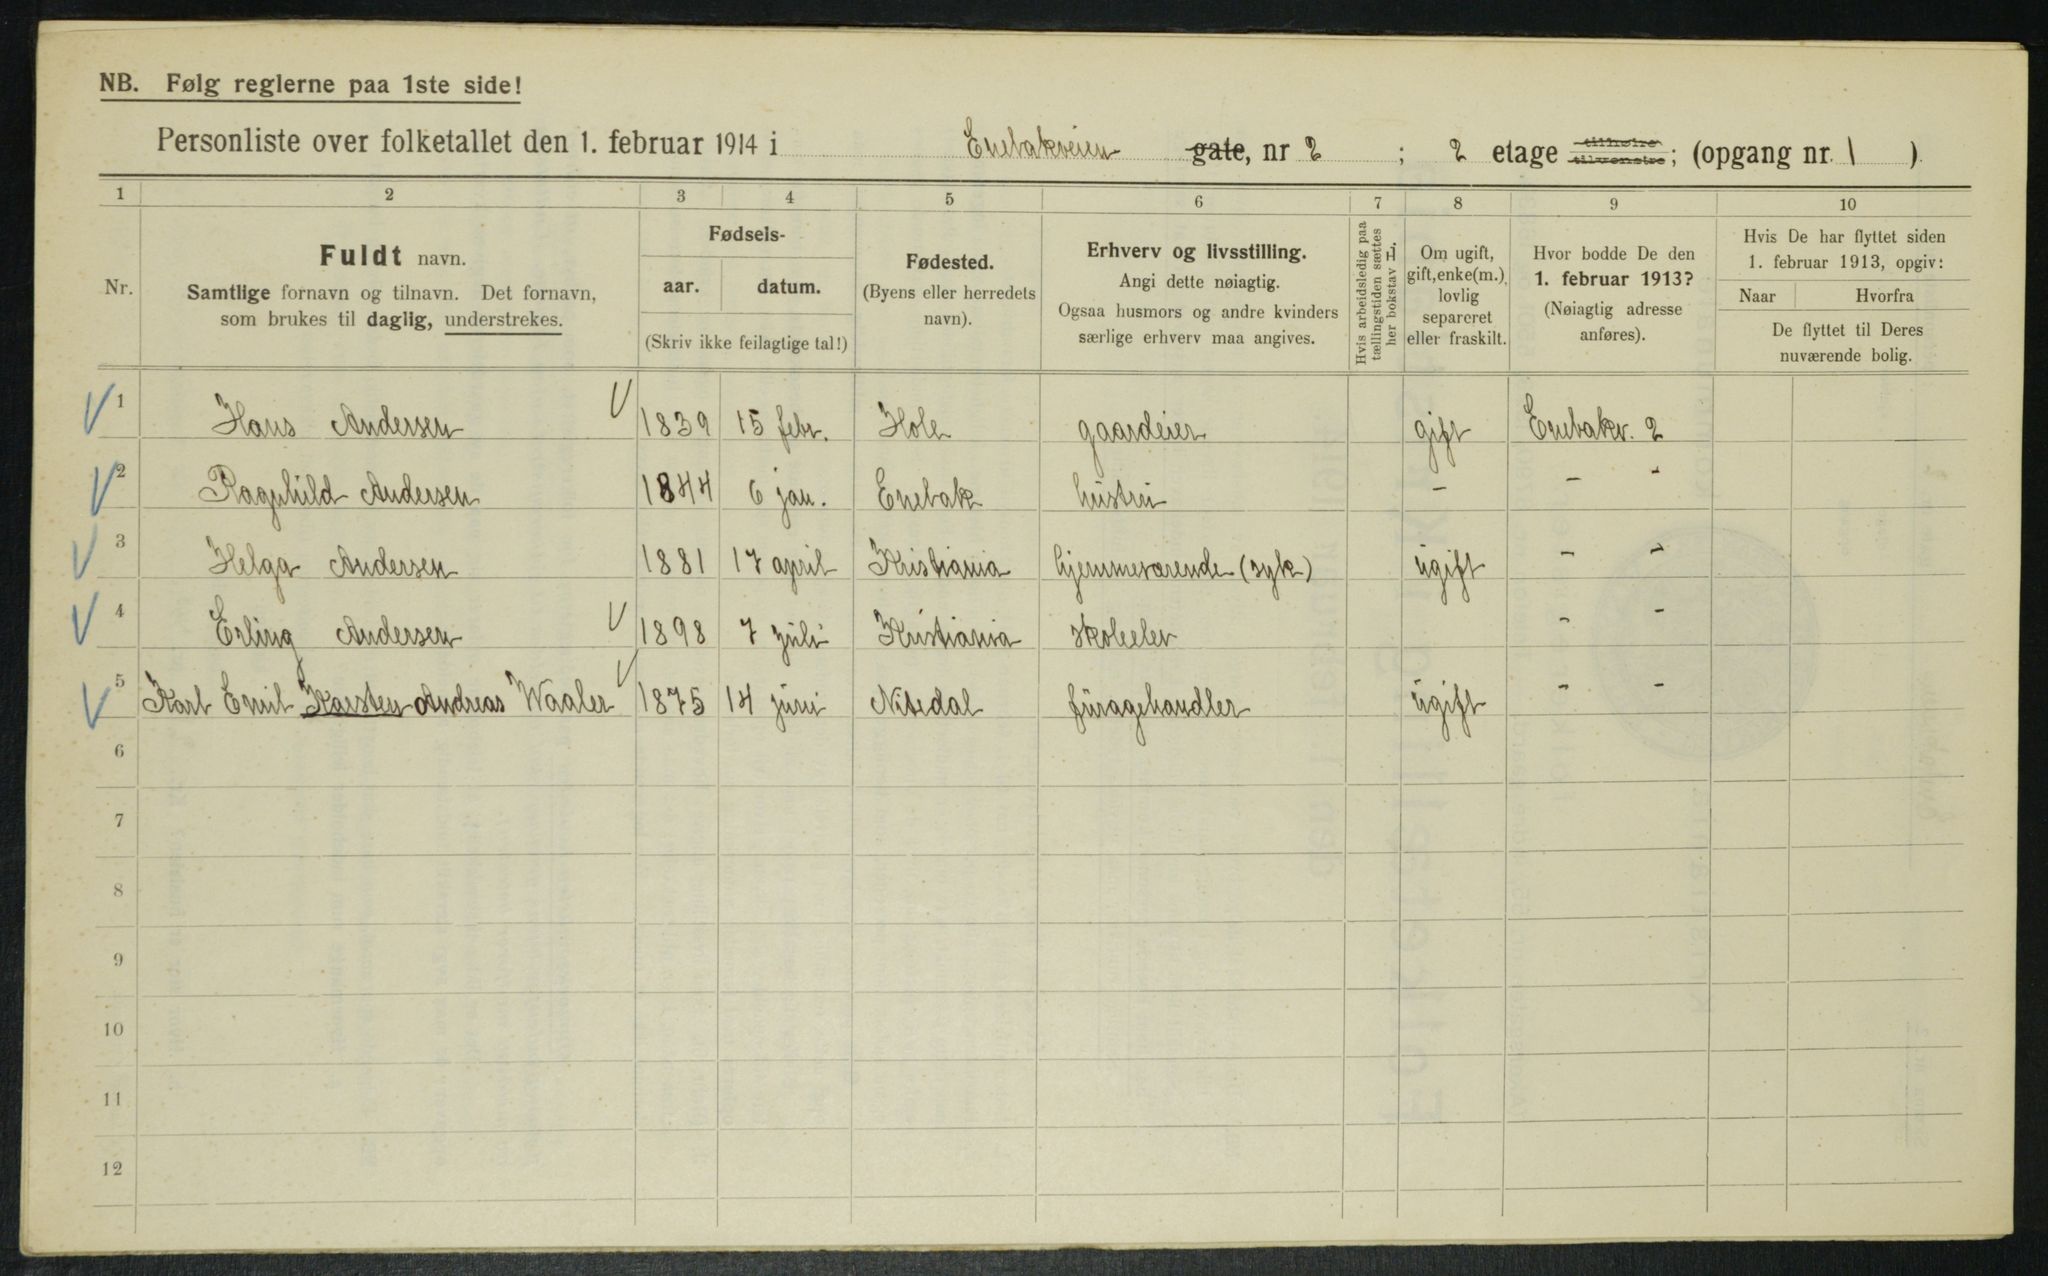 NB. Følg reglerne paa 1ste side!
Personliste over folketallet den 1. februar 1914 i Enebakveien gate, nr 2 ; 2 etage tilhøire tilvenstre; (opgang nr. 1 )
1 2 3 4 5 6 7 8 9 10
Nr.
Fuldt navn.
Samtlige fornavn og tilnavn. Det fornavn,
som brukes til daglig, understrekes.
Fødsels-
aar. datum.
(Skriv ikke feilagtige tal!)
Fødested.
(Byens eller herredets
navn).
Erhverv og livsstilling.
Angi dette nøiagtig.
Ogsaa husmors og andre kvinders
særlige erhverv maa angives.
Hvis arbeidsledig paa
tællingstiden sættes
her bokstav L.
Om ugift,
gift, enke(m.),
lovlig
separeret
eller fraskilt.
Hvor bodde De den
1. februar 1913?
(Nøiagtig adresse
anføres).
Hvis De har flyttet siden
1. februar 1913, opgiv:
Naar Hvorfra
De flyttet til Deres
nuværende bolig.
1 Hans Andersen 1839 15 febr. Hole gaardeier gift Enebakv. 2
2 Ragnhild Andersen 1844 6 jan. Enebak hustru - - -
3 Helga Andersen 1881 17 april Kristiania hjemmeværende (syk) ugift - -
4 Erling Andersen 1898 7 juli Kristiania skoleelev - -
5 Karl Emil Karsten Andreas Waaler 1875 14 juni Nitedal furagehandler ugift - -
6
7
8
9
10
11
12